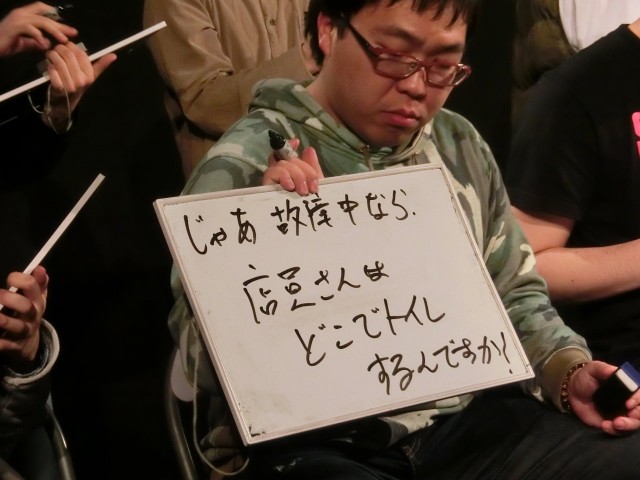 じゃあ 故障中なら、
店員さんは
どこでトイレ
するんですか!